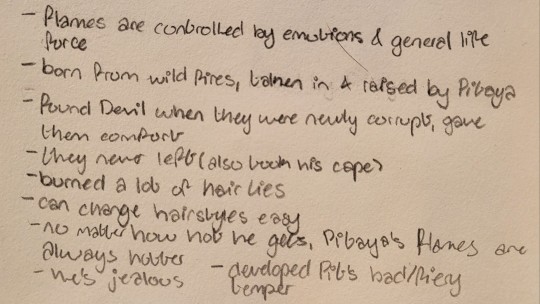 - Flames are controlled by emotions & general life
force
- born from wild fires, taken in & raised by Pitaya
- Found Devil when they were newly corrupt, gave
them comfort
- they never left (also took his cape)
- burned a lot of hair ties
- can change hairstyles easy
- no matter how hot he gets, Pitaya's flames are
always hotter
- he's jealous - developed Pit's bad/fiery
temper